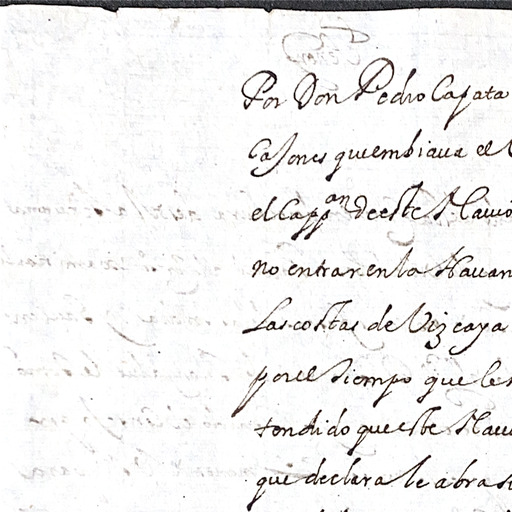 Por Don Pedro Capata
Cajones quembiaua el V
el Capp.an deeste Nauio
no entrar en la Hauan
Las costas de Vizcaya
por el tiempo que le
tendido queeste Naui
que declara le abra s